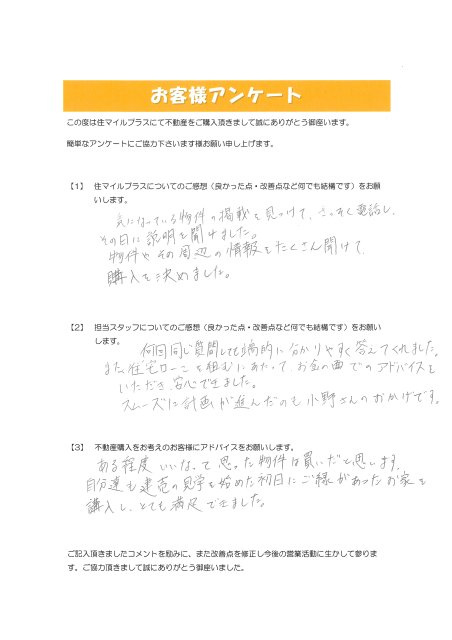 お客様アンケート
この度は住マイルプラスにて不動産をご購入頂きまして誠にありがとう御座います。
簡単なアンケートにご協力下さいます様お願い申し上げます。
【1】 住マイルプラスについてのご感想（良かった点・改善点など何でも結構です）をお願
いします。
気になっている物件の掲載を見つけて、さっそく電話し、
その日に説明を聞けました。
物件やその周辺の情報をたくさん聞けて、
購入を決めました。
【2】 担当スタッフについてのご感想（良かった点・改善点など何でも結構です）をお願い
します。
何回同じ質問しても端的に分かりやすく答えてくれました。
また住宅ローンを組むにあたって、お金の面でのアドバイスを
いただき、安心できました。
スムーズに計画が進んだのも小野さんのおかげです。
【3】 不動産購入をお考えのお客様にアドバイスをお願いします。
ある程度いいなって思った物件は買いだと思います。
自分達も建売の見学を始めた初日にご縁があったお家を
購入し、とても満足できました。
ご記入頂きましたコメントを励みに、また改善点を修正し今後の営業活動に生かして参りま
す。ご協力頂きまして誠にありがとう御座いました。